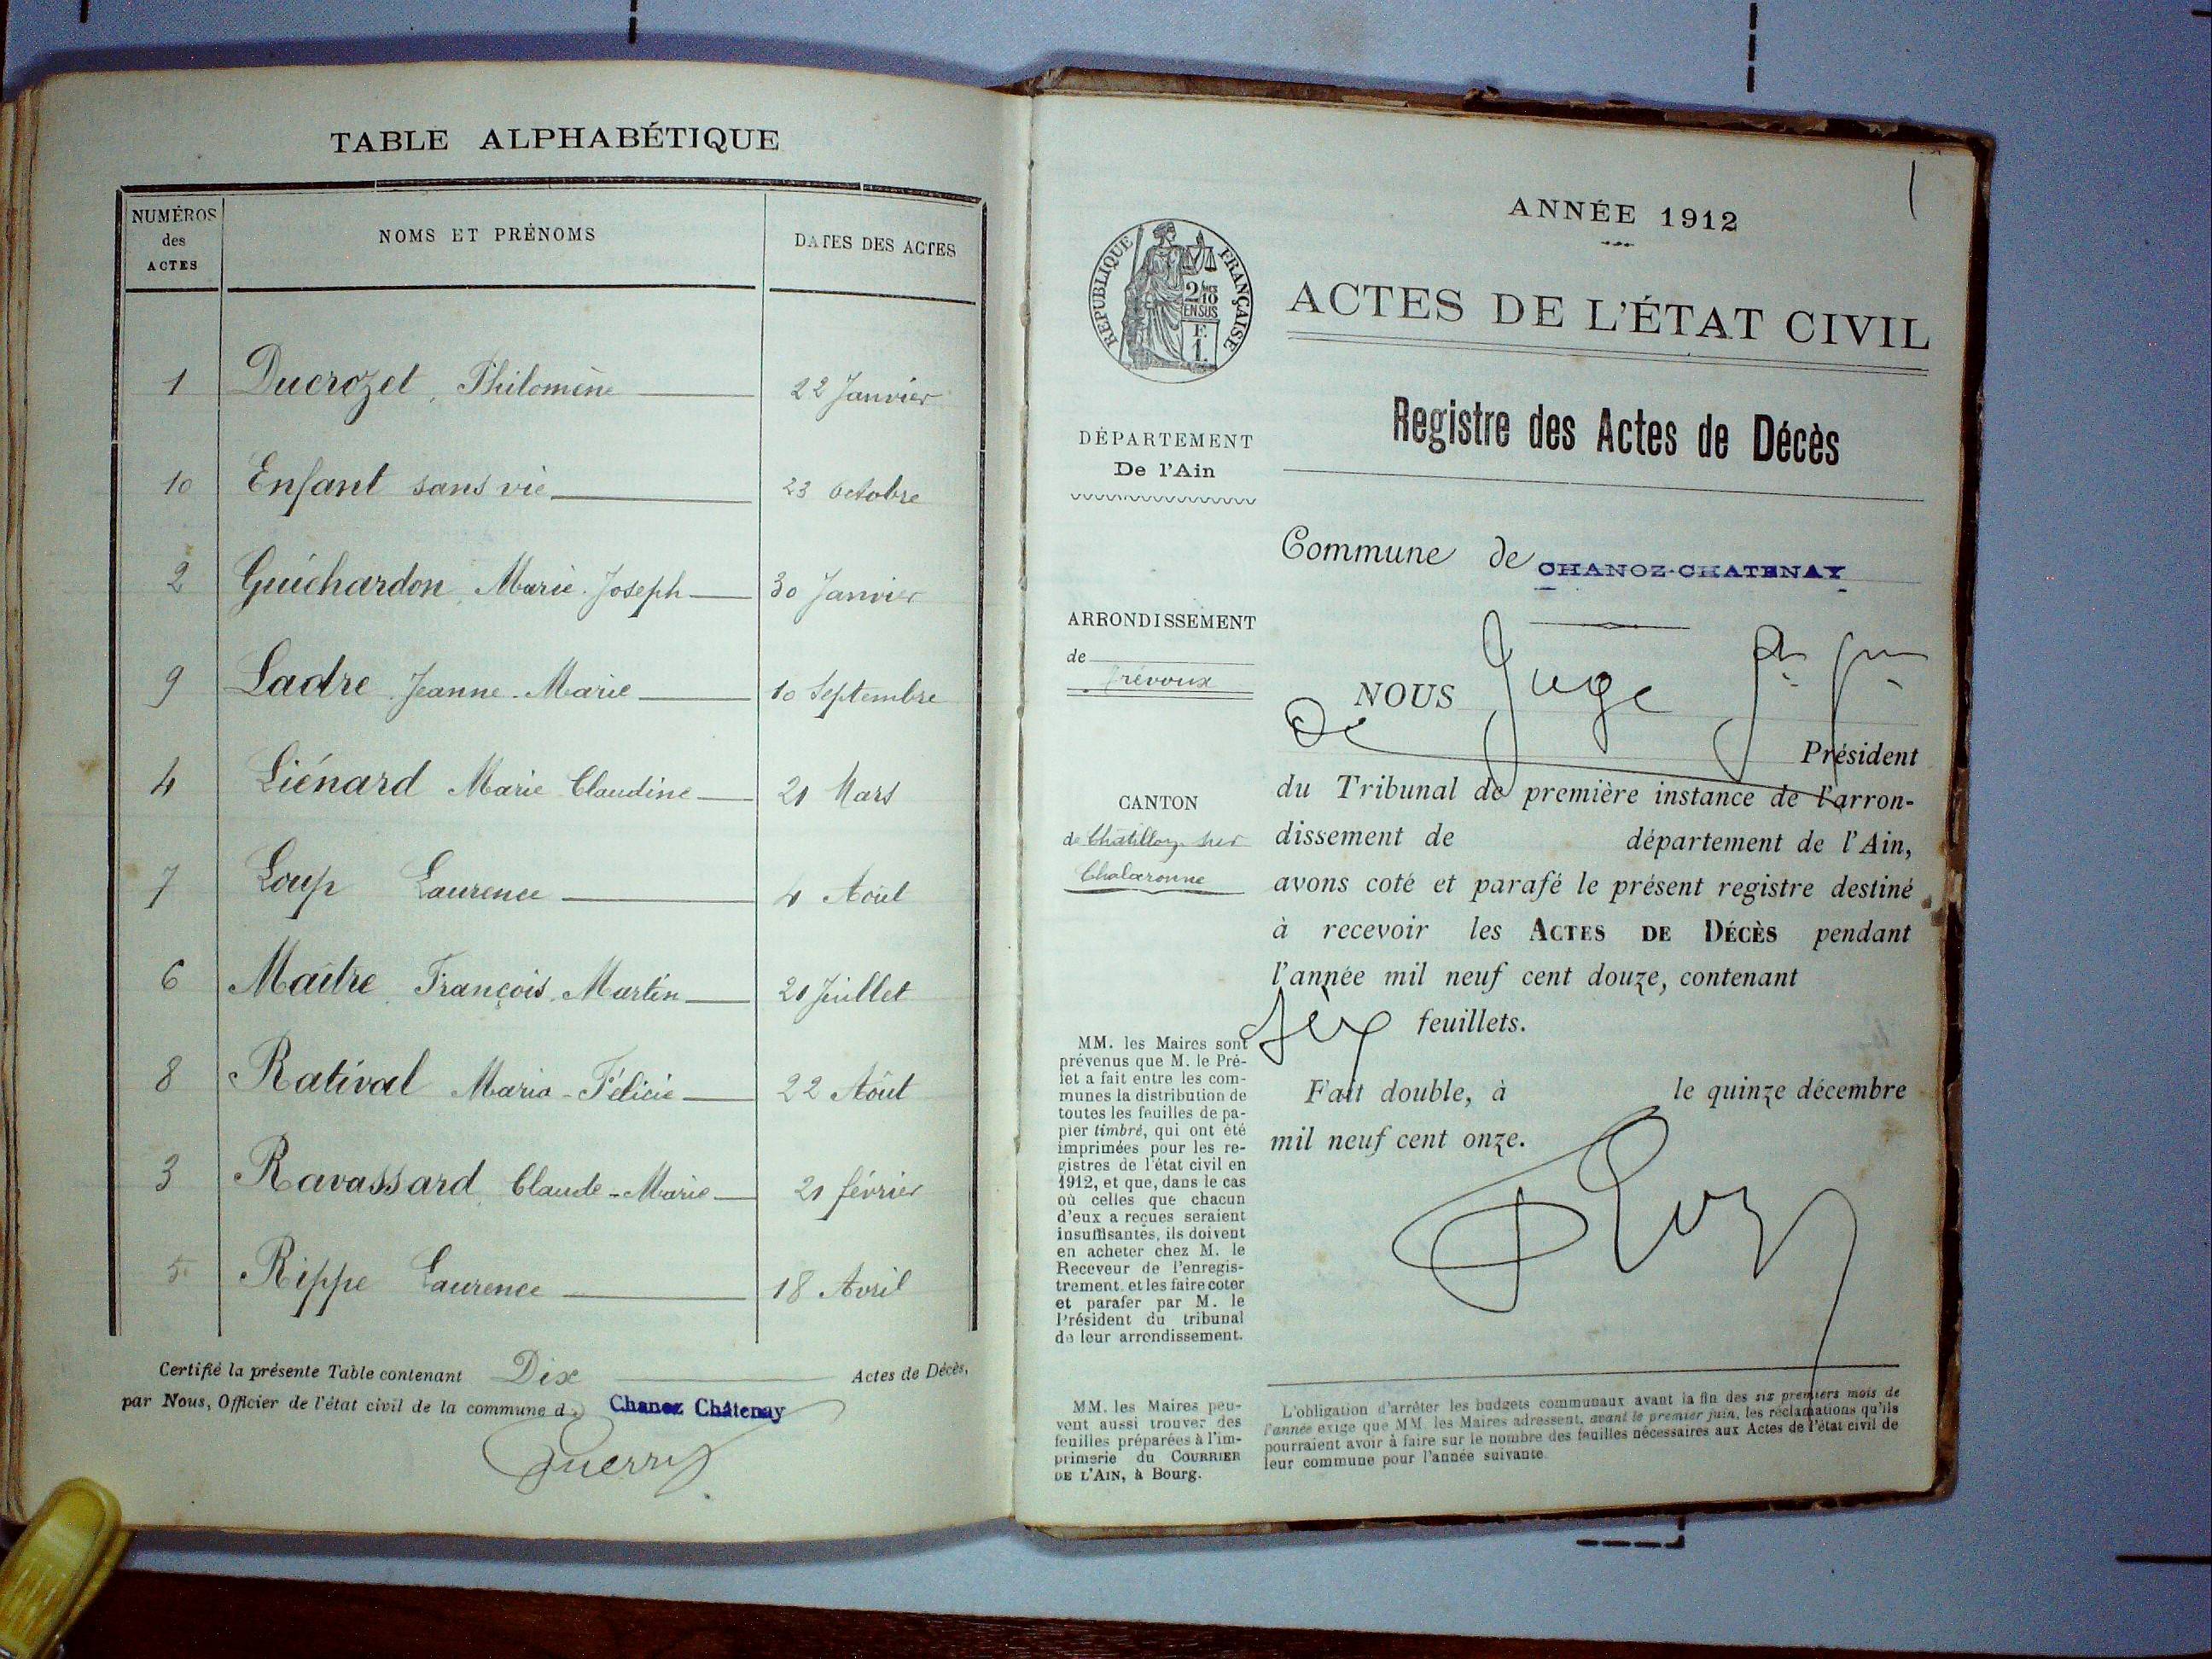 TABLE ALPHABÉTIQUE
NUMÉROS des ACTES
NOMS ET PRÉNOMS
DATES DES ACTES
1 Ducrozet, Philomène 22 Janvier
10 Enfant sans vie 23 Octobre
2 Guichardon, Marie-Joseph 30 Janvier
9 Ladre, Jeanne-Marie 10 Septembre
4 Liénard Marie Claudine 21 Mars
7 Loup Laurence 4 Août
6 Maître, François, Martin 21 Juillet
8 Ratival Maria-Félicie 22 Août
3 Ravassard, Claude-Marie 21 février
5 Rippe Laurence 18 Avril
Certifié la présente Table contenant Dix Actes de Décès,
par Nous, Officier de l'état civil de la commune d Chanoz Châtenay
ANNÉE 1912
RÉPUBLIQUE FRANÇAISE
2/10
EN SUS
F
1
ACTES DE L'ÉTAT CIVIL
Registre des Actes de Décès
DÉPARTEMENT
De l'Ain
Commune de CHANOZ-CHATENAY
ARRONDISSEMENT
de
Trévoux
NOUS Juge
De
Président
CANTON
de Châtillon sur
Chalaronne
du Tribunal de première instance de l'arron-
dissement de département de l'Ain,
avons coté et parafé le présent registre destiné
à recevoir les ACTES DE DÉCÈS pendant
l'année mil neuf cent douze, contenant
six feuillets.
Fait double, à le quinze décembre
mil neuf cent onze.
MM. les Maires sont
prévenus que M. le Pré-
fet a fait entre les com-
munes la distribution de
toutes les feuilles de pa-
pier timbré, qui ont été
imprimées pour les re-
gistres de l'état civil en
1912, et que, dans le cas
où celles que chacun
d'eux a reçues seraient
insuffisantes, ils doivent
en acheter chez M. le
Receveur de l'enregis-
trement, et les faire coter
et parafer par M. le
Président du tribunal
de leur arrondissement.
MM. les Maires peu-
vent aussi trouver des
feuilles préparées à l'im-
primerie du COURRIER
DE L'AIN, à Bourg.
L'obligation d'arrêter les budgets communaux avant la fin des six premiers mois de
l'année exige que MM. les Maires adressent, avant le premier juin, les réclamations qu'ils
pourraient avoir à faire sur le nombre des feuilles nécessaires aux Actes de l'état civil de
leur commune pour l'année suivante.